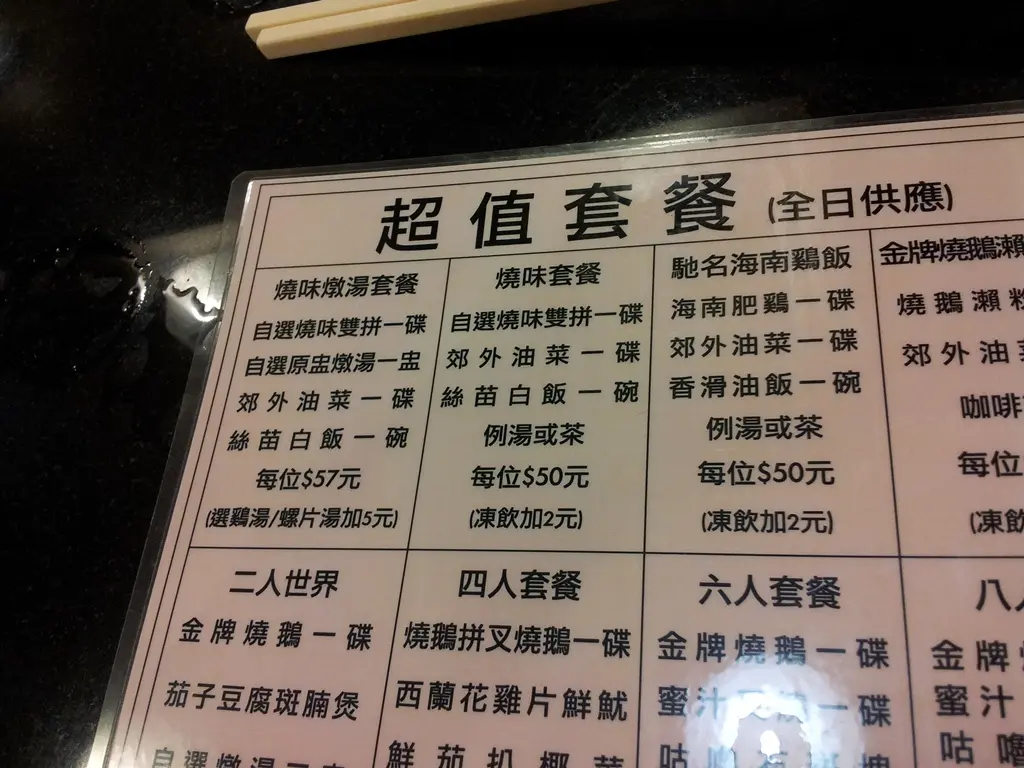 超值套餐 (全日供應)
燒味燉湯套餐
自選燒味雙拼一碟
自選原盅燉湯一盅
郊外油菜一碟
絲苗白飯一碗
每位$57元
(選鷄湯/螺片湯加5元)
燒味套餐
自選燒味雙拼一碟
郊外油菜一碟
絲苗白飯一碗
例湯或茶
每位$50元
(凍飲加2元)
馳名海南鷄飯
海南肥鷄一碟
郊外油菜一碟
香滑油飯一碗
例湯或茶
每位$50元
(凍飲加2元)
金牌燒鵝瀨
燒鵝瀨粉
郊外油菜
咖啡
每位
(凍飲
二人世界
金牌燒鵝一碟
茄子豆腐斑腩煲
四人套餐
燒鵝拼叉燒鵝一碟
西蘭花雞片鮮魷
六人套餐
金牌燒鵝一碟
蜜汁 一碟
咕嚕
八人
金牌燒
蜜汁
咕嚕